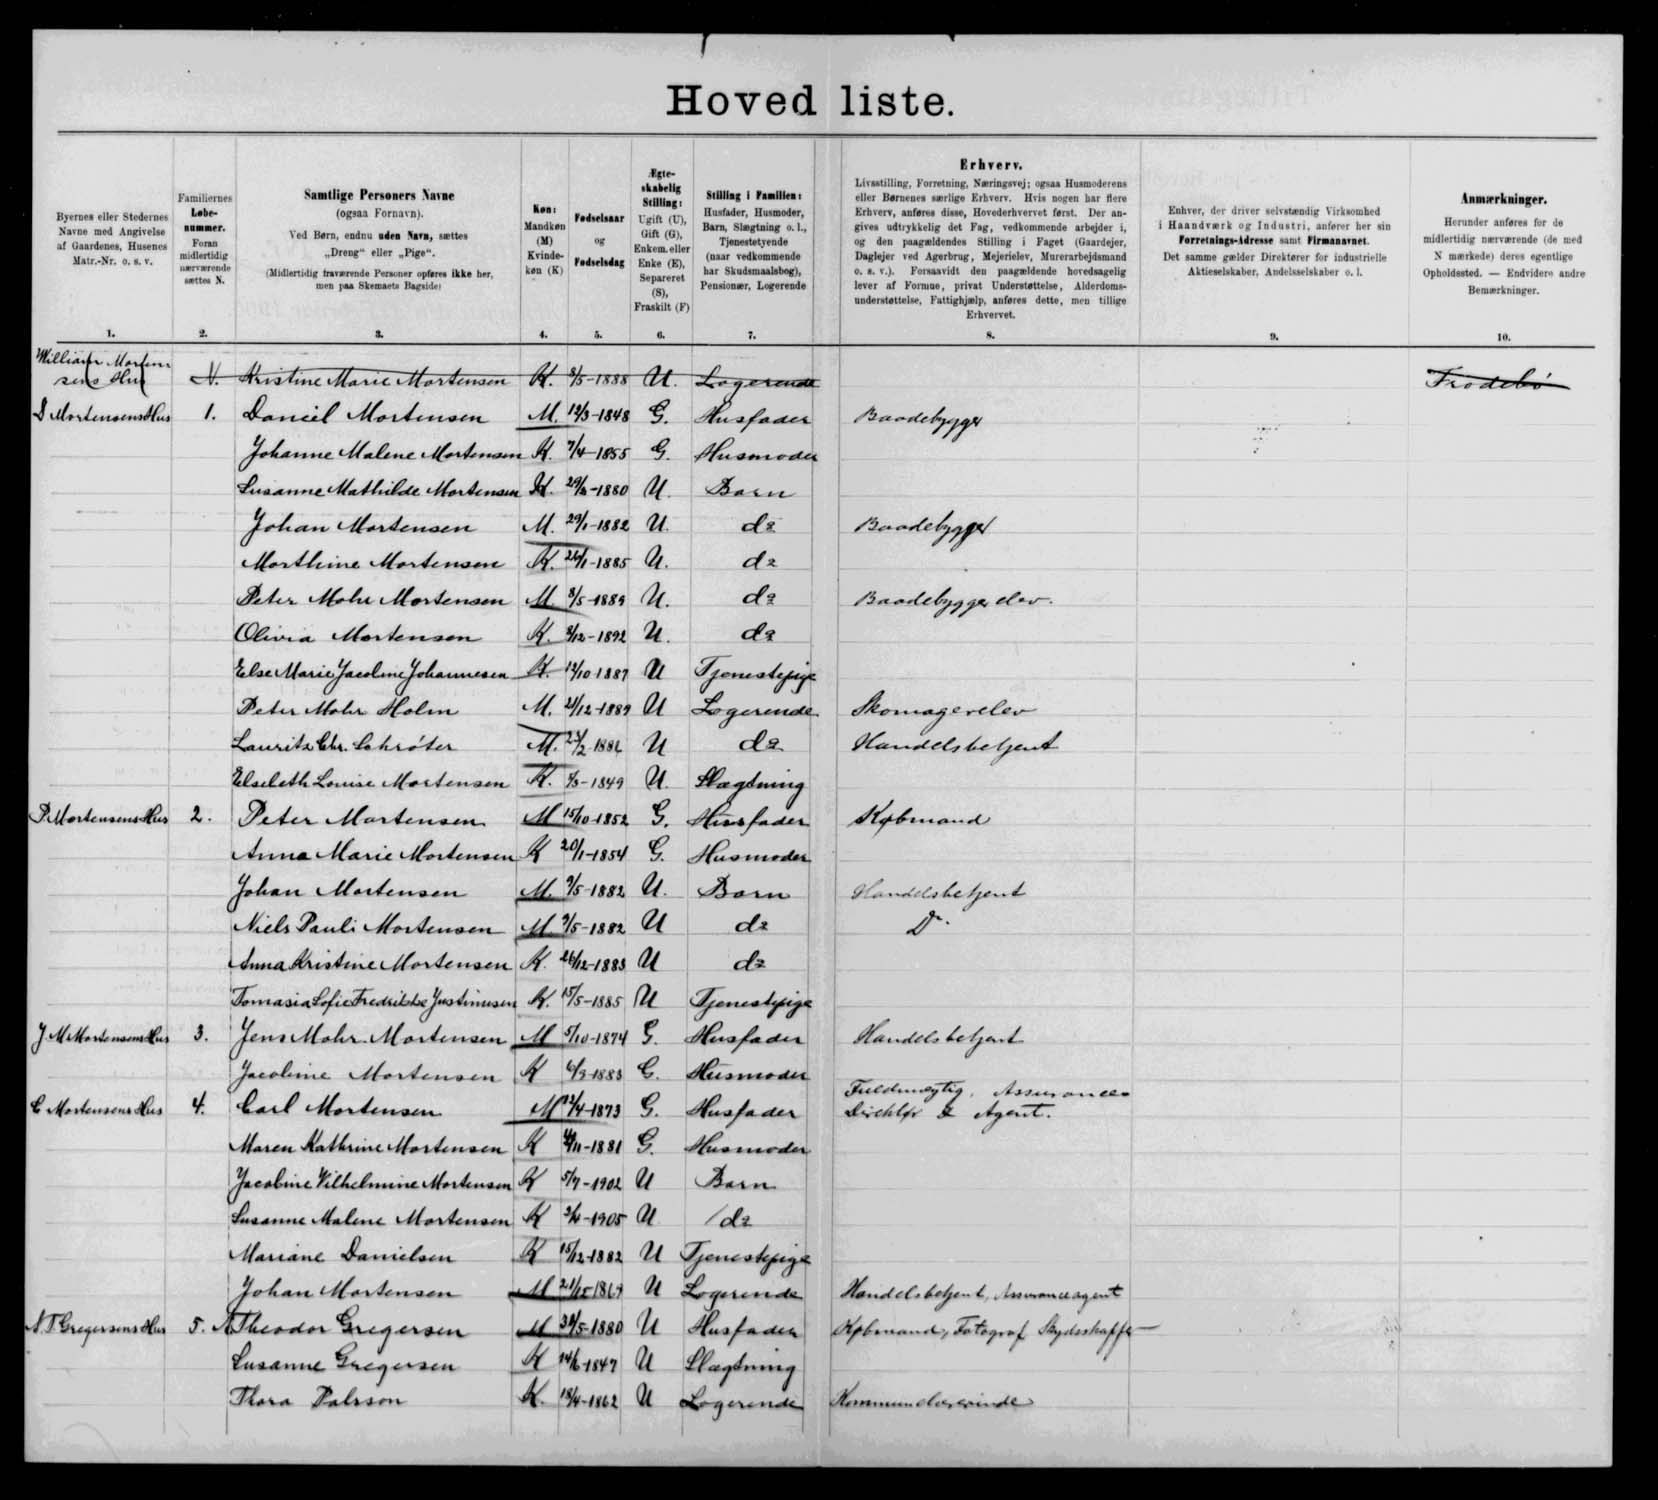 Hoved liste.
Byernes eller Stedernes
Navne med Angivelse
af Gaardenes, Husenes
Matr.-Nr. o. s. v.
1.
Familiernes
Løbe-
nummer.
Foran
midlertidig
nærværende
sættes N.
2.
Samtlige Personers Navne
(ogsaa Fornavn).
Ved Børn, endnu uden Navn, sættes
„Dreng" eller „Pige".
(Midlertidig fraværende Personer opføres ikke her,
men paa Skemaets Bagside)
3.
Køn:
Mandkøn
(M)
Kvinde-
køn (K)
4.
Fødselsaar
og
Fødselsdag
5.
Ægte-
skabelig
Stilling:
Ugift (U),
Gift (G),
Enkem. eller
Enke (E),
Separeret
(S),
Fraskilt (F)
6.
Stilling i Familien:
Husfader, Husmoder,
Barn, Slægtning o. l.,
Tjenestetyende
(naar vedkommende
har Skudsmaalsbog),
Pensionær, Logerende
7.
Erhverv.
Livsstilling, Forretning, Næringsvej; ogsaa Husmoderens
eller Børnenes særlige Erhverv. Hvis nogen har flere
Erhverv, anføres disse, Hovederhvervet først. Der an-
gives udtrykkelig det Fag, vedkommende arbejder i,
og den paagældendes Stilling i Faget (Gaardejer,
Daglejer ved Agerbrug, Mejerielev, Murerarbejdsmand
o. s. v.). Forsaavidt den paagældende hovedsagelig
lever af Formue, privat Understøttelse, Alderdoms-
understøttelse, Fattighjælp, anføres dette, men tillige
Erhvervet.
8.
Enhver, der driver selvstændig Virksomhed
i Haandværk og Industri, anfører her sin
Forretnings-Adresse samt Firmanavnet.
Det samme gælder Direktører for industrielle
Aktieselskaber, Andelsselskaber o. l.
9.
Anmærkninger.
Herunder anføres for de
midlertidig nærværende (de med
N mærkede) deres egentlige
Opholdssted. — Endvidere andre
Bemærkninger.
10.
William Morten
sens Hus N. Kristine Marie Mortensen K. 8/5-1888 U. Logerende Frodebø
D Mortensens Hus 1. Daniel Mortensen M. 12/3-1848 G. Husfader Baadebygger
Johanne Malene Mortensen K. 7/4-1855 G. Husmoder
Susanne Mathilde Mortensen K. -1880 U. Barn
Johan Mortensen M. 29/1-1882 U. do Baadebygger
Morthine Mortensen K. -1885 U. do
Peter Mohr Mortensen M. 8/5-1889 U. do Baadebyggerelev.
Olivia Mortensen K. 8/12-1892 U. do
Else Marie Jacoline Johannesen K. 12/10-1887 U Tjenestepige
Peter Mohr Holm M. 21/12-1889 U Logerende Skomagerelev
Lauritz Chr. Schrøter M. U do Handelsbetjent
Elsebeth Louise Mortensen K. -1849 U. Slægtning
P. Mortensens Hus 2. Peter Mortensen M 15/10-1852 G. Husfader Købmand
Anna Marie Mortensen K 20/1-1854 G. Husmoder
Johan Mortensen M. 9/5-1882 U. Barn Handelsbetjent
Niels Pauli Mortensen M 9/5-1882 U do Do.
Anna Kristine Mortensen K. 26/12-1883 U do
Tomasia Sofie Fredrikke Justinusen K. 15/5-1885 U Tjenestepige
J. M. Mortensens Hus 3. Jens Mohr Mortensen M 5/10-1874 G. Husfader Handelsbetjent
Jacobine Mortensen K 6/9-1883 G. Husmoder
C Mortensens Hus 4. Carl Mortensen M 12/4-1873 G. Husfader Fuldmægtig, Assurance
Direktør & Agent.
Maren Kathrine Mortensen K -1881 G. Husmoder
Jacobine Vilhelmine Mortensen K 5/7-1902 U Barn
Susanne Malene Mortensen K -1905 U do
Mariane Danielsen K 15/12-1882 U Tjenestepige
Johan Mortensen M U Logerende Handelsbetjent, Assuranceagent
N. T. Gregersens Hus 5. N Theodor Gregersen M -1880 U Husfader Købmand, Fotograf Skydsskaffer
Susanne Gregersen K 14/6-1847 U Slægtning
Thora Palsson K. 18/4-1862 U Logerende Kommunelærerinde